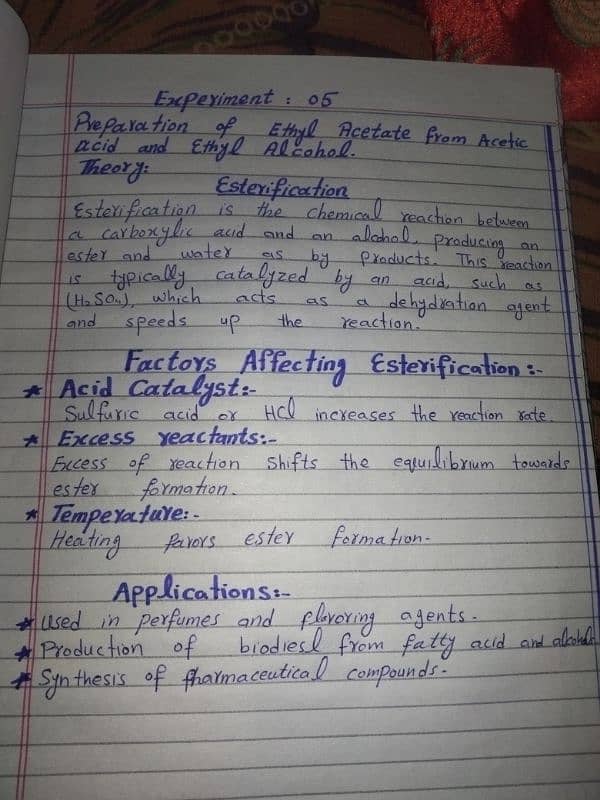 Experiment : 05
Preparation of Ethyl Acetate from Acetic
acid and Ethyl Alcohol.
Theory:
Esterification
Esterification is the chemical reaction between
a carboxylic acid and an alcohol, producing an
ester and water as by products. This reaction
is typically catalyzed by an acid, such as
(H₂SO₄), which acts as a dehydration agent
and speeds up the reaction.
Factors Affecting Esterification :-
★ Acid Catalyst:-
Sulfuric acid or HCl increases the reaction rate.
★ Excess reactants:-
Excess of reaction shifts the equilibrium towards
ester formation.
★ Temperature:-
Heating favors ester formation-
Applications:-
★ used in perfumes and flavoring agents.
★ Production of biodiesl from fatty acid and alcohol
★ Synthesis of pharmaceutical compounds.